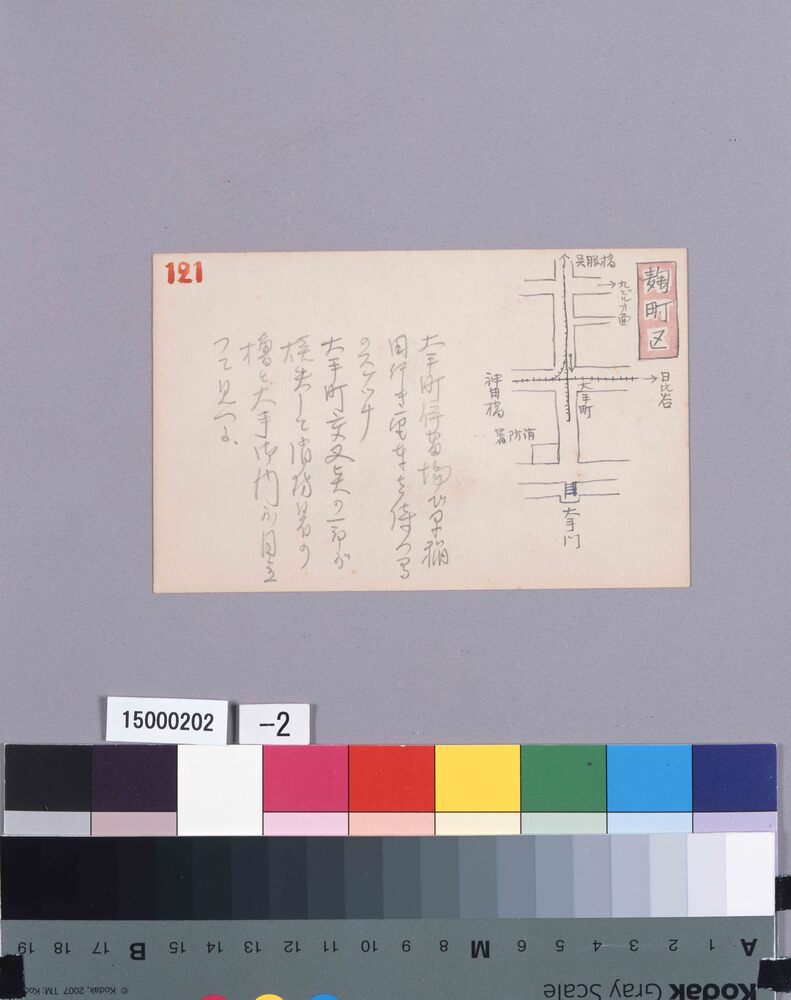 121
麹町区
呉服橋
丸ビル方面
日比谷
大手町
神田橋
消防署
大手門
大手町停留場で早稲
田行き電車を待つ間
のスケッチ
大手町交叉点の一部が
焼失して消防署の
櫓と大手御門が目立
つて見へる、
15000202
-2
A 1 2 3 4 5 6 M 8 9 10 11 12 13 14 15 B 17 18 19
Kodak Gray Scale
© Kodak, 2007 TM: Kodak